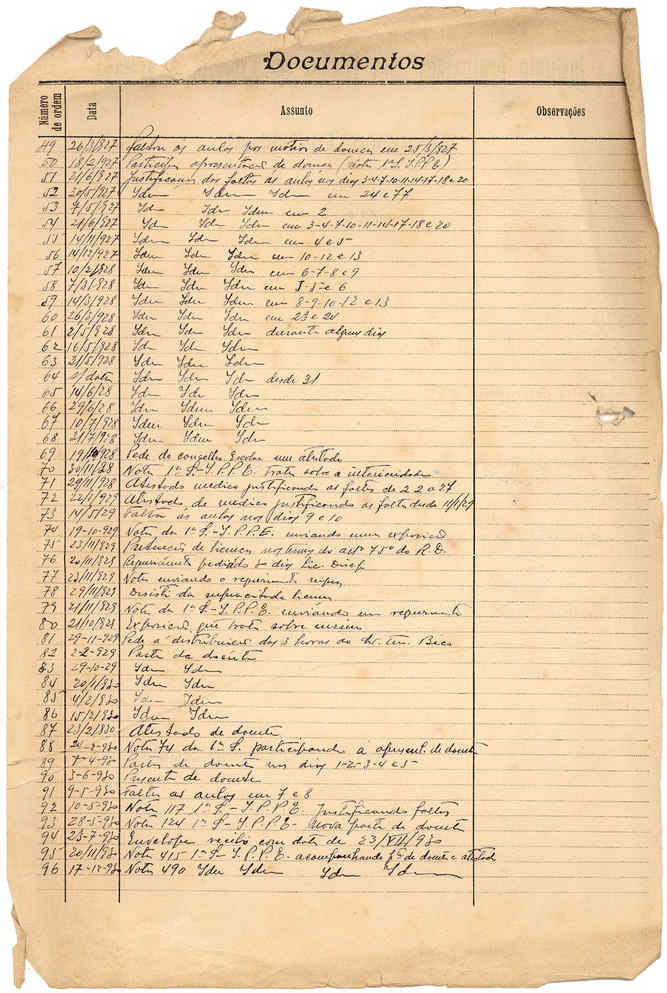 Documentos
Número de ordem Data Assunto Observações
49 26/3/927 faltou ás aulas por motivo de doença em 25/3/927
50 18/2/927 Participa apresentação de doença (nota 1ª S. I.P.P.E)
51 21/6/927 Justificação das faltas ás aulas nos dias 3-4-7-10-11-14-17-18 e 20
52 20/5/927 Idem Idem Idem em
53 7/5/927 Idem Idem Idem em 2
54 21/6/927 Idem Idem Idem em 3-4-7-10-11-14-17-18 e 20
55 14/11/927 Idem Idem Idem em 4 e 5
56 14/12/927 Idem Idem Idem em 10-12 e 13
57 10/2/928 Idem Idem Idem em 6-7-8 e 9
58 7/3/928 Idem Idem Idem em e 6
59 14/3/928 Idem Idem Idem em 8-9-10-12 e 13
60 26/3/928 Idem Idem Idem em 23 e 24
61 2/5/928 Idem Idem Idem durante alguns dias
62 16/5/928 Idem Idem Idem
63 21/5/928 Idem Idem Idem
64 s/ data Idem Idem Idem desde 31
65 14/6/28 Idem Idem Idem
66 29/6/28 Idem Idem Idem
67 10/7/928 Idem Idem Idem
68 21/7/928 Idem Idem Idem
69 Pede do conselho Escolar um atestado
70 30/11/28 Nota 1ª S.-I.P.P.E. Trata sobre a
71 29/11/928 Atestado medico justificando as faltas de 22 a 27
72 22/1/929 Atestado de medico justificando as faltas desde 11/1/29
73 14/5/29 Faltou ás aulas nos dias 9 e 10
74 19-10-929 Nota da 1ª S.-I.P.P.E. enviando uma exposição
75 23/11/929 de licença nos termos do do R.D.
76 20/11/929 pedindo dias lic. Discip
77 23/11/929 Nota enviando o requerimento
78 29/11/929 Desisti da licença
79 21/11/929 Nota da 1ª S.-I.P.P.E. enviando um requerimento
80 21/10/928 Exposição que trata sobre ensino
81 29-11-929 Pede a distribuição das 3 horas do
82 2-2-929 Parte de doente
83 29-10-29 Idem Idem
84 20/1/930 Idem Idem
85 4/2/930 Idem Idem
86 15/2/930 Idem Idem
87 23/2/930 Atestado de doente
88 Nota 74 da 1ª S. participando a apresent. de doente
89 7-4-930 Partes de doente nos dias 1-2-3-4 e 5
90 3-6-930 de doente
91 9-5-930 Faltas ás aulas em 7 e 8
92 10-5-930 Nota 117 1ª S.-I.P.P.E. Justificando faltas
93 28-5-930 Nota 124 1ª S.-I.P.P.E.- nova parte de doente
94 23-7-930 Envelope recibo com data de 23/VII/930
95 20/11/930 Nota 415 1ª S.-I.P.P.E. acompanhando de doente e atestado
96 17-12-930 Nota 490 Idem Idem Idem Idem